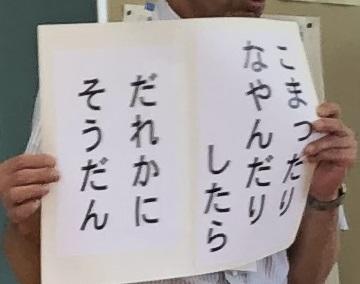 こまったり
なやんだり
したら
だれかに
そうだん